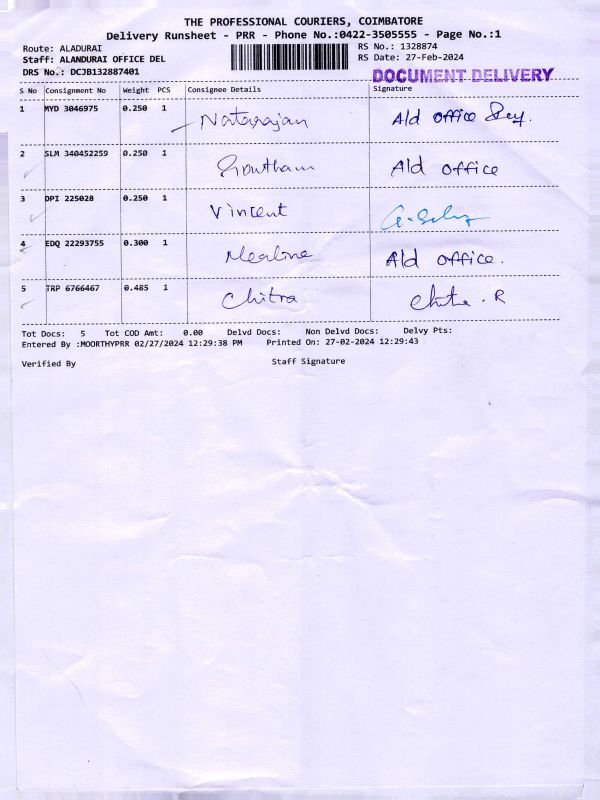 THE PROFESSIONAL COURIERS, COIMBATORE
Delivery Runsheet - PRR - Phone No.:0422-3505555 - Page No.:1
Route: ALADURAI RS No.: 1328874
Staff: ALANDURAI OFFICE DEL RS Date: 27-Feb-2024
DRS No.: DCJB132887401 DOCUMENT DELIVERY
S No Consignment No Weight PCS Consignee Details Signature
1 MYD 3046975 0.250 1 Natarajan Ald office
2 SLM 340452259 0.250 1 Gowtham Ald office
3 DPI 225028 0.250 1 Vincent
4 EDQ 22293755 0.300 1 Ald office.
5 TRP 6766467 0.485 1 Chitra Chitra . R
Tot Docs: 5 Tot COD Amt: 0.00 Delvd Docs: Non Delvd Docs: Delvy Pts:
Entered By :MOORTHYPRR 02/27/2024 12:29:38 PM Printed On: 27-02-2024 12:29:43
Verified By Staff Signature